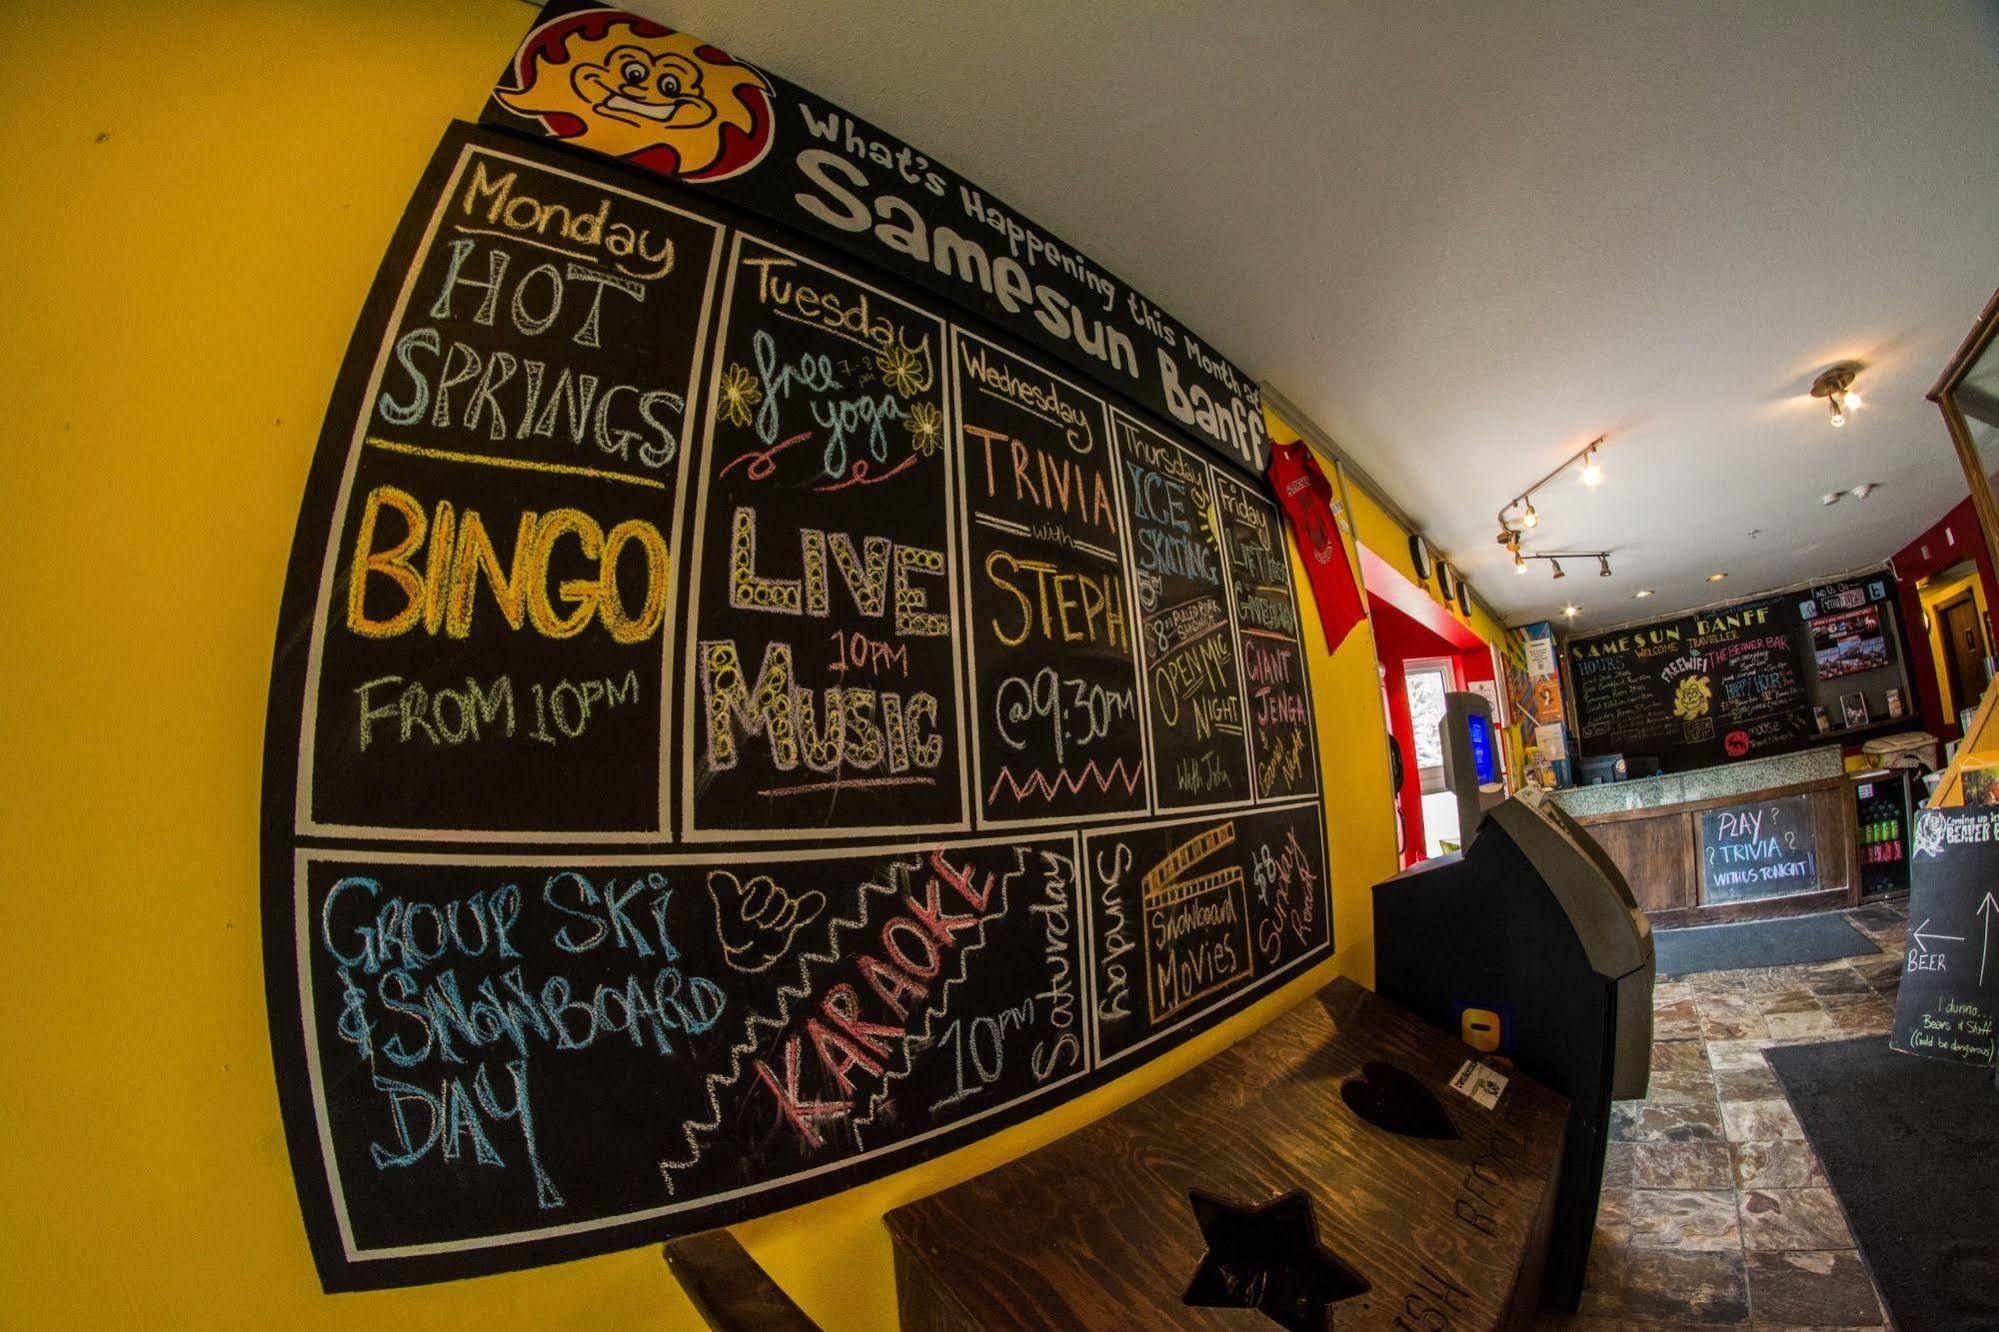 What's Happening this Month at
Samesun Banff
Monday
HOT
SPRINGS
BINGO
FROM 10PM
Tuesday
free 7-8
pm
yoga
LIVE
10PM
MUSIC
Wednesday
TRIVIA
with
STEPH
@9:30PM
Thursday
ICE
SKATING
$8 PULLED PORK
SANDWICH
OPEN MIC
NIGHT
With John
Friday
LIFT PASS
GIVEAWAY
GIANT
JENGA
& Game
Night
GROUP SKI
& SNOWBOARD
DAY
KARAOKE
10PM
Saturday
Sunday
Snowboard
MOVIES
$8
Sunday
Roast
SAMESUN BANFF
WELCOME TRAVELLER
HOURS
FREE WIFI
THE BEAVER BAR
HAPPY HOURS
MOOSE
PLAY
? TRIVIA ?
WITH US TONIGHT!!
Coming up in
BEAVER
BEER
I dunno...
Bears & Stuff
(Could be dangerous)